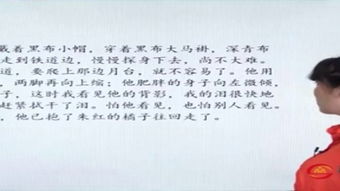 戴着黑布小帽，穿着黑布大马褂，深青布
走到铁道边，慢慢探身下去，尚不大难。
道，要爬上那边月台，就不容易了。他用
，两脚再向上缩；他肥胖的身子向左微倾，
子，这时我看见他的背影，我的泪很快地
赶紧拭干了泪。怕他看见，也怕别人看见。
，他已抱了朱红的橘子往回走了。